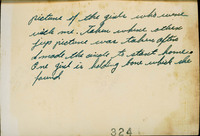 picture of the girls who were
with me. Taken where other
pictures was taken after
I made the angle to start home.
One girl is holding bone which she
found
324